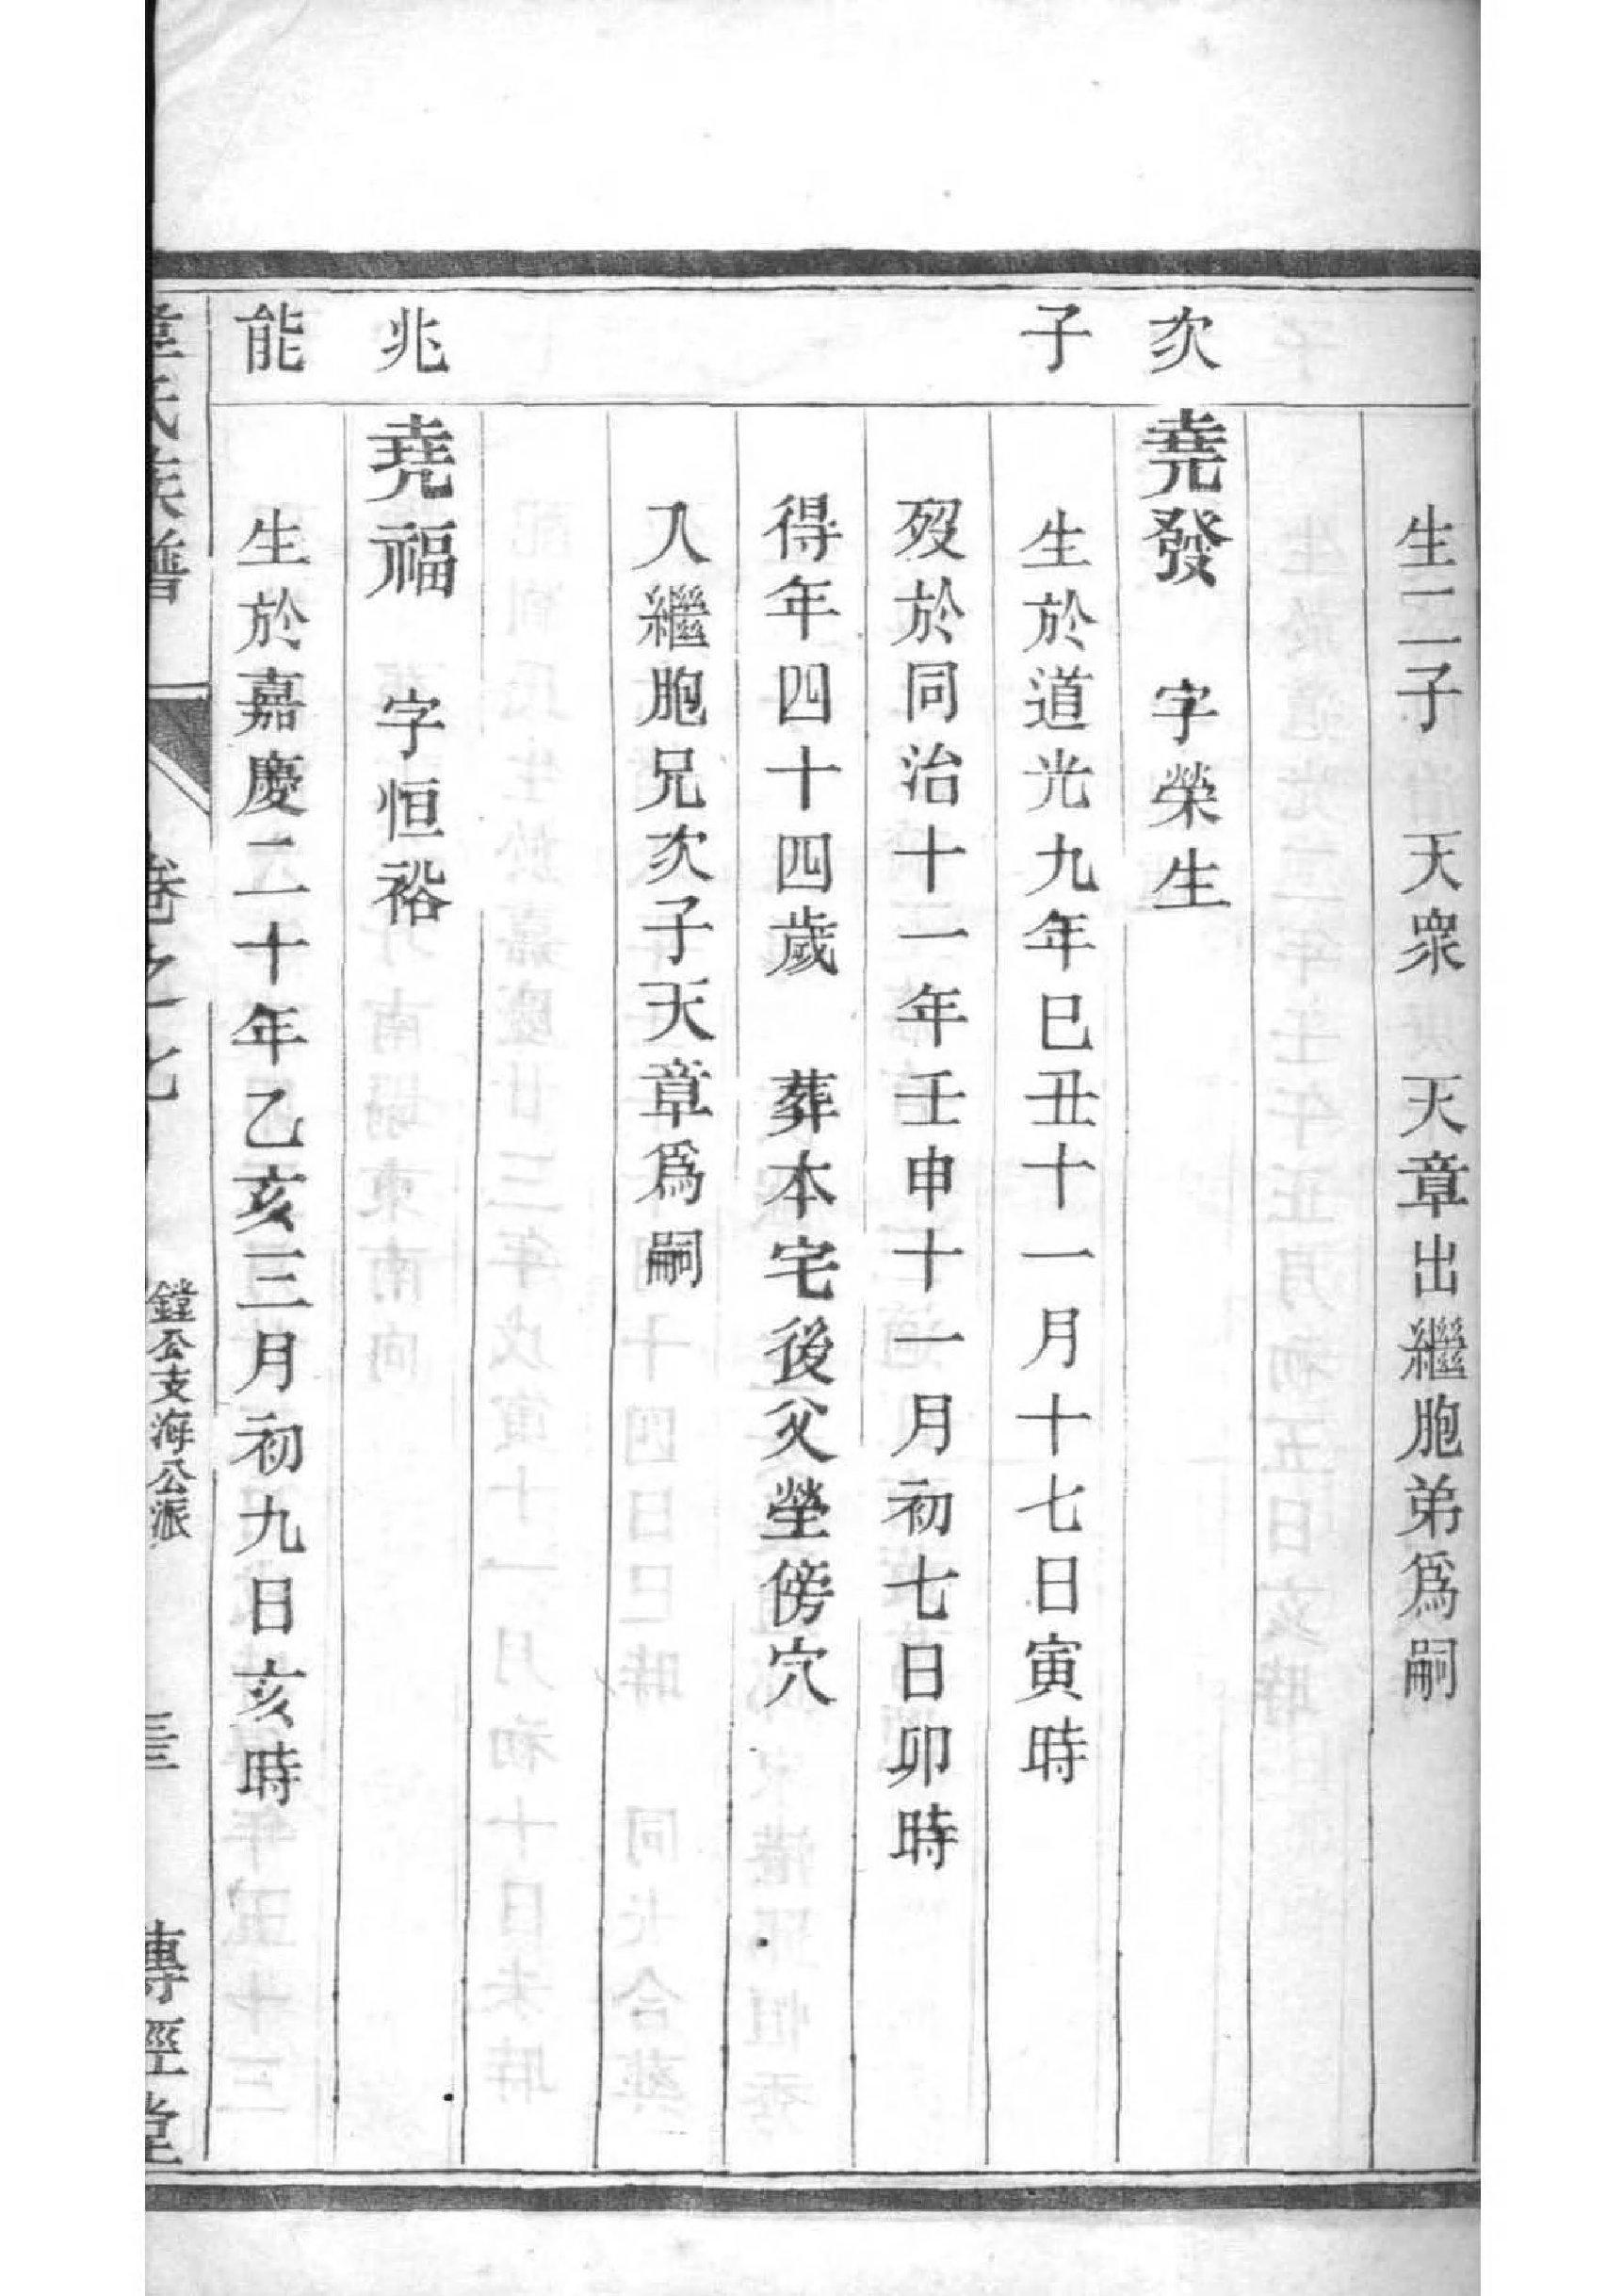 生二子　天衆　天章出繼胞弟爲嗣
次　堯發　字榮生
子　生於道光九年巳丑十一月十七日寅時
歿於同治十一年壬申十一月初七日卯時
得年四十四歲　葬本宅後父塋傍穴
入繼胞兄次子天章爲嗣
兆　堯福　字恒裕
能　生於嘉慶二十年乙亥三月初九日亥時
章氏族譜　卷之七　鏜公支海公派　傳經堂